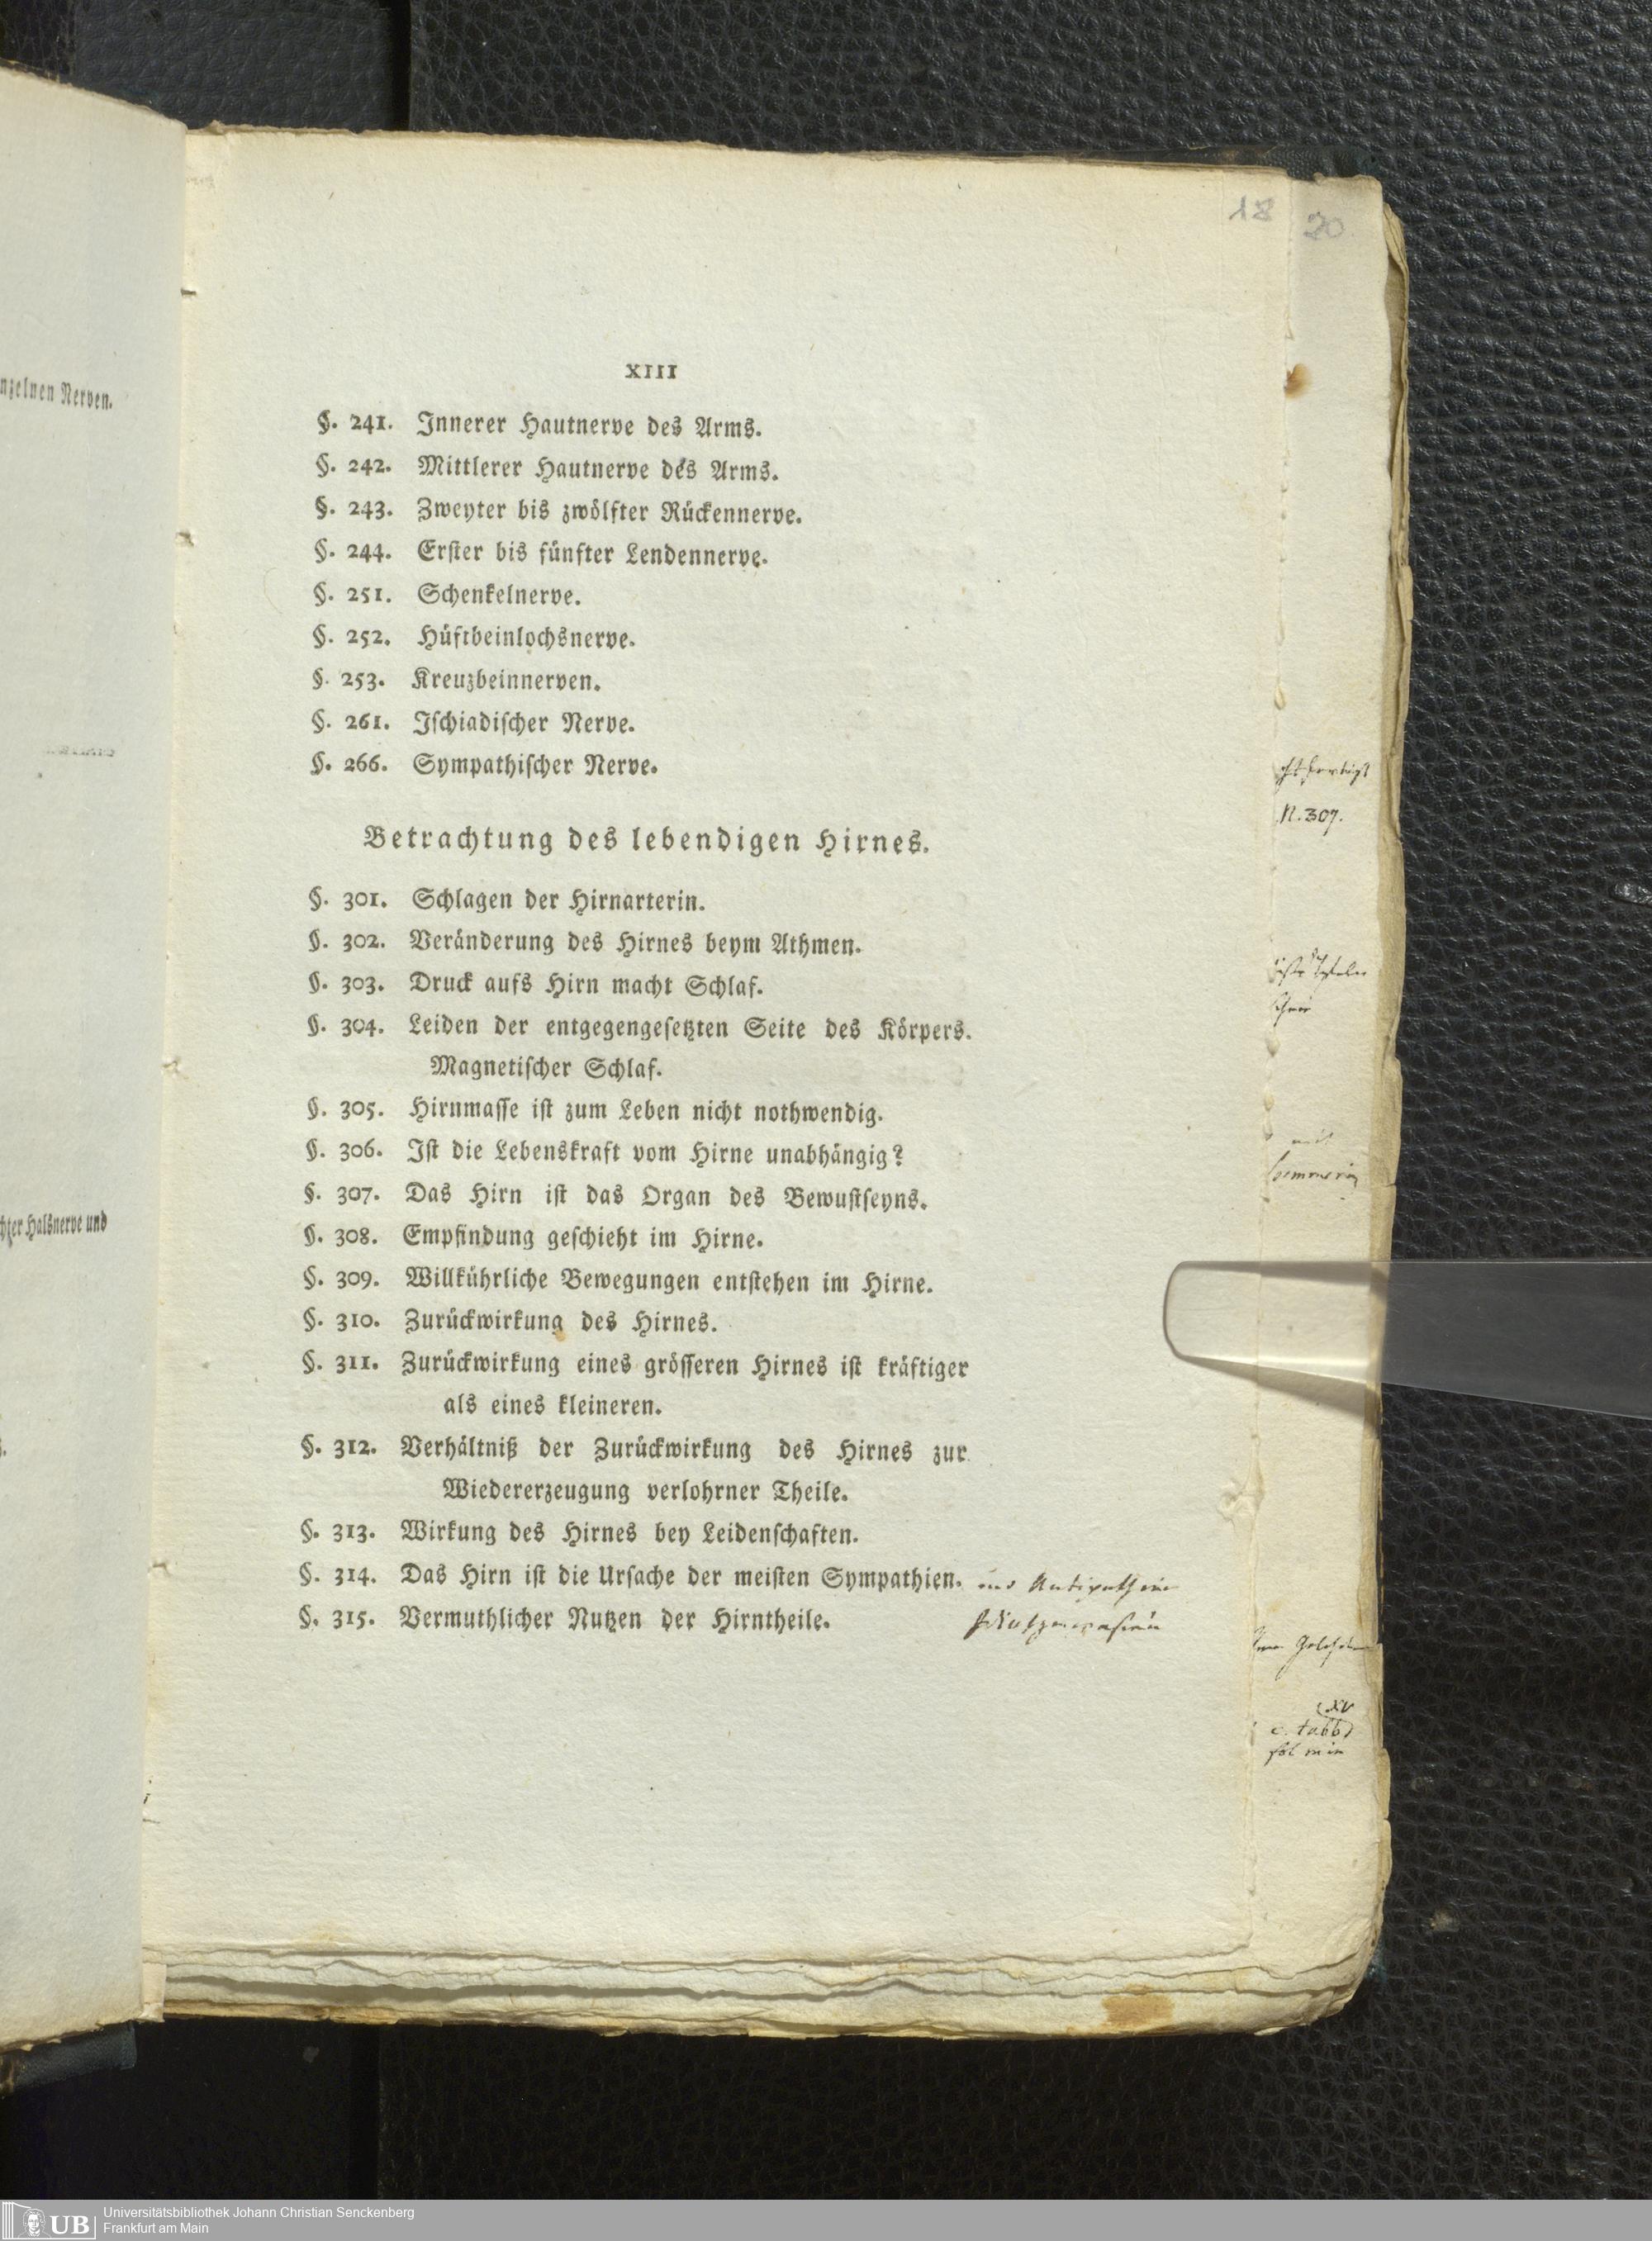 nzelnen Nerven.
hter Halsnerve und
18
20
XIII
§. 241. Innerer Hautnerve des Arms.
§. 242. Mittlerer Hautnerve des Arms.
§. 243. Zweyter bis zwölfter Rückennerve.
§. 244. Erster bis fünfter Lendennerve.
§. 251. Schenkelnerve.
§. 252. Hüftbeinlochsnerve.
§. 253. Kreuzbeinnerven.
§. 261. Ischiadischer Nerve.
§. 266. Sympathischer Nerve.
N. 307.
Betrachtung des lebendigen Hirnes.
§. 301. Schlagen der Hirnarterin.
§. 302. Veränderung des Hirnes beym Athmen.
§. 303. Druck aufs Hirn macht Schlaf.
§. 304. Leiden der entgegengesetzten Seite des Körpers.
Magnetischer Schlaf.
§. 305. Hirnmasse ist zum Leben nicht nothwendig.
§. 306. Ist die Lebenskraft vom Hirne unabhängig?
§. 307. Das Hirn ist das Organ des Bewustseyns.
§. 308. Empfindung geschieht im Hirne.
§. 309. Willkührliche Bewegungen entstehen im Hirne.
§. 310. Zurückwirkung des Hirnes.
§. 311. Zurückwirkung eines grösseren Hirnes ist kräftiger
als eines kleineren.
§. 312. Verhältniß der Zurückwirkung des Hirnes zur
Wiedererzeugung verlohrner Theile.
§. 313. Wirkung des Hirnes bey Leidenschaften.
§. 314. Das Hirn ist die Ursache der meisten Sympathien. und Antipathien
§. 315. Vermuthlicher Nutzen der Hirntheile.
c. tabb
fol min
UB
Universitätsbibliothek Johann Christian Senckenberg
Frankfurt am Main